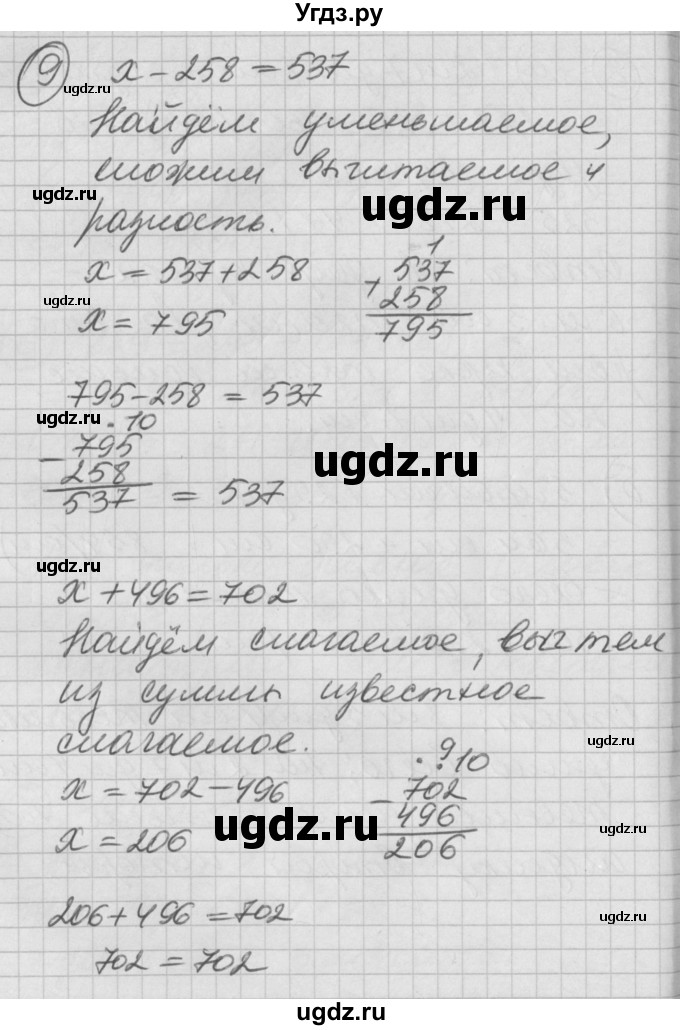 Угдз.ру
9 x - 258 = 537
ugdz.ru
Найдём уменьшаемое,
сложим вычитаемое и
ugdz.ru
ugdz.ru
разность.
x = 537 + 258
1
+ 537
ugdz.ru
258
x = 795
795
795 - 258 = 537
ugdz.ru
. 10
- 795
ugdz.ru
258
537 = 537
ugdz.ru
x + 496 = 702
Найдём слагаемое, вычтем
из суммы известное
слагаемое.
ugdz.ru
. 9 . 10
x = 702 - 496
- 702
ugdz.ru
496
ugdz.ru
x = 206
206
206 + 496 = 702
ugdz.ru
702 = 702
ugdz.ru